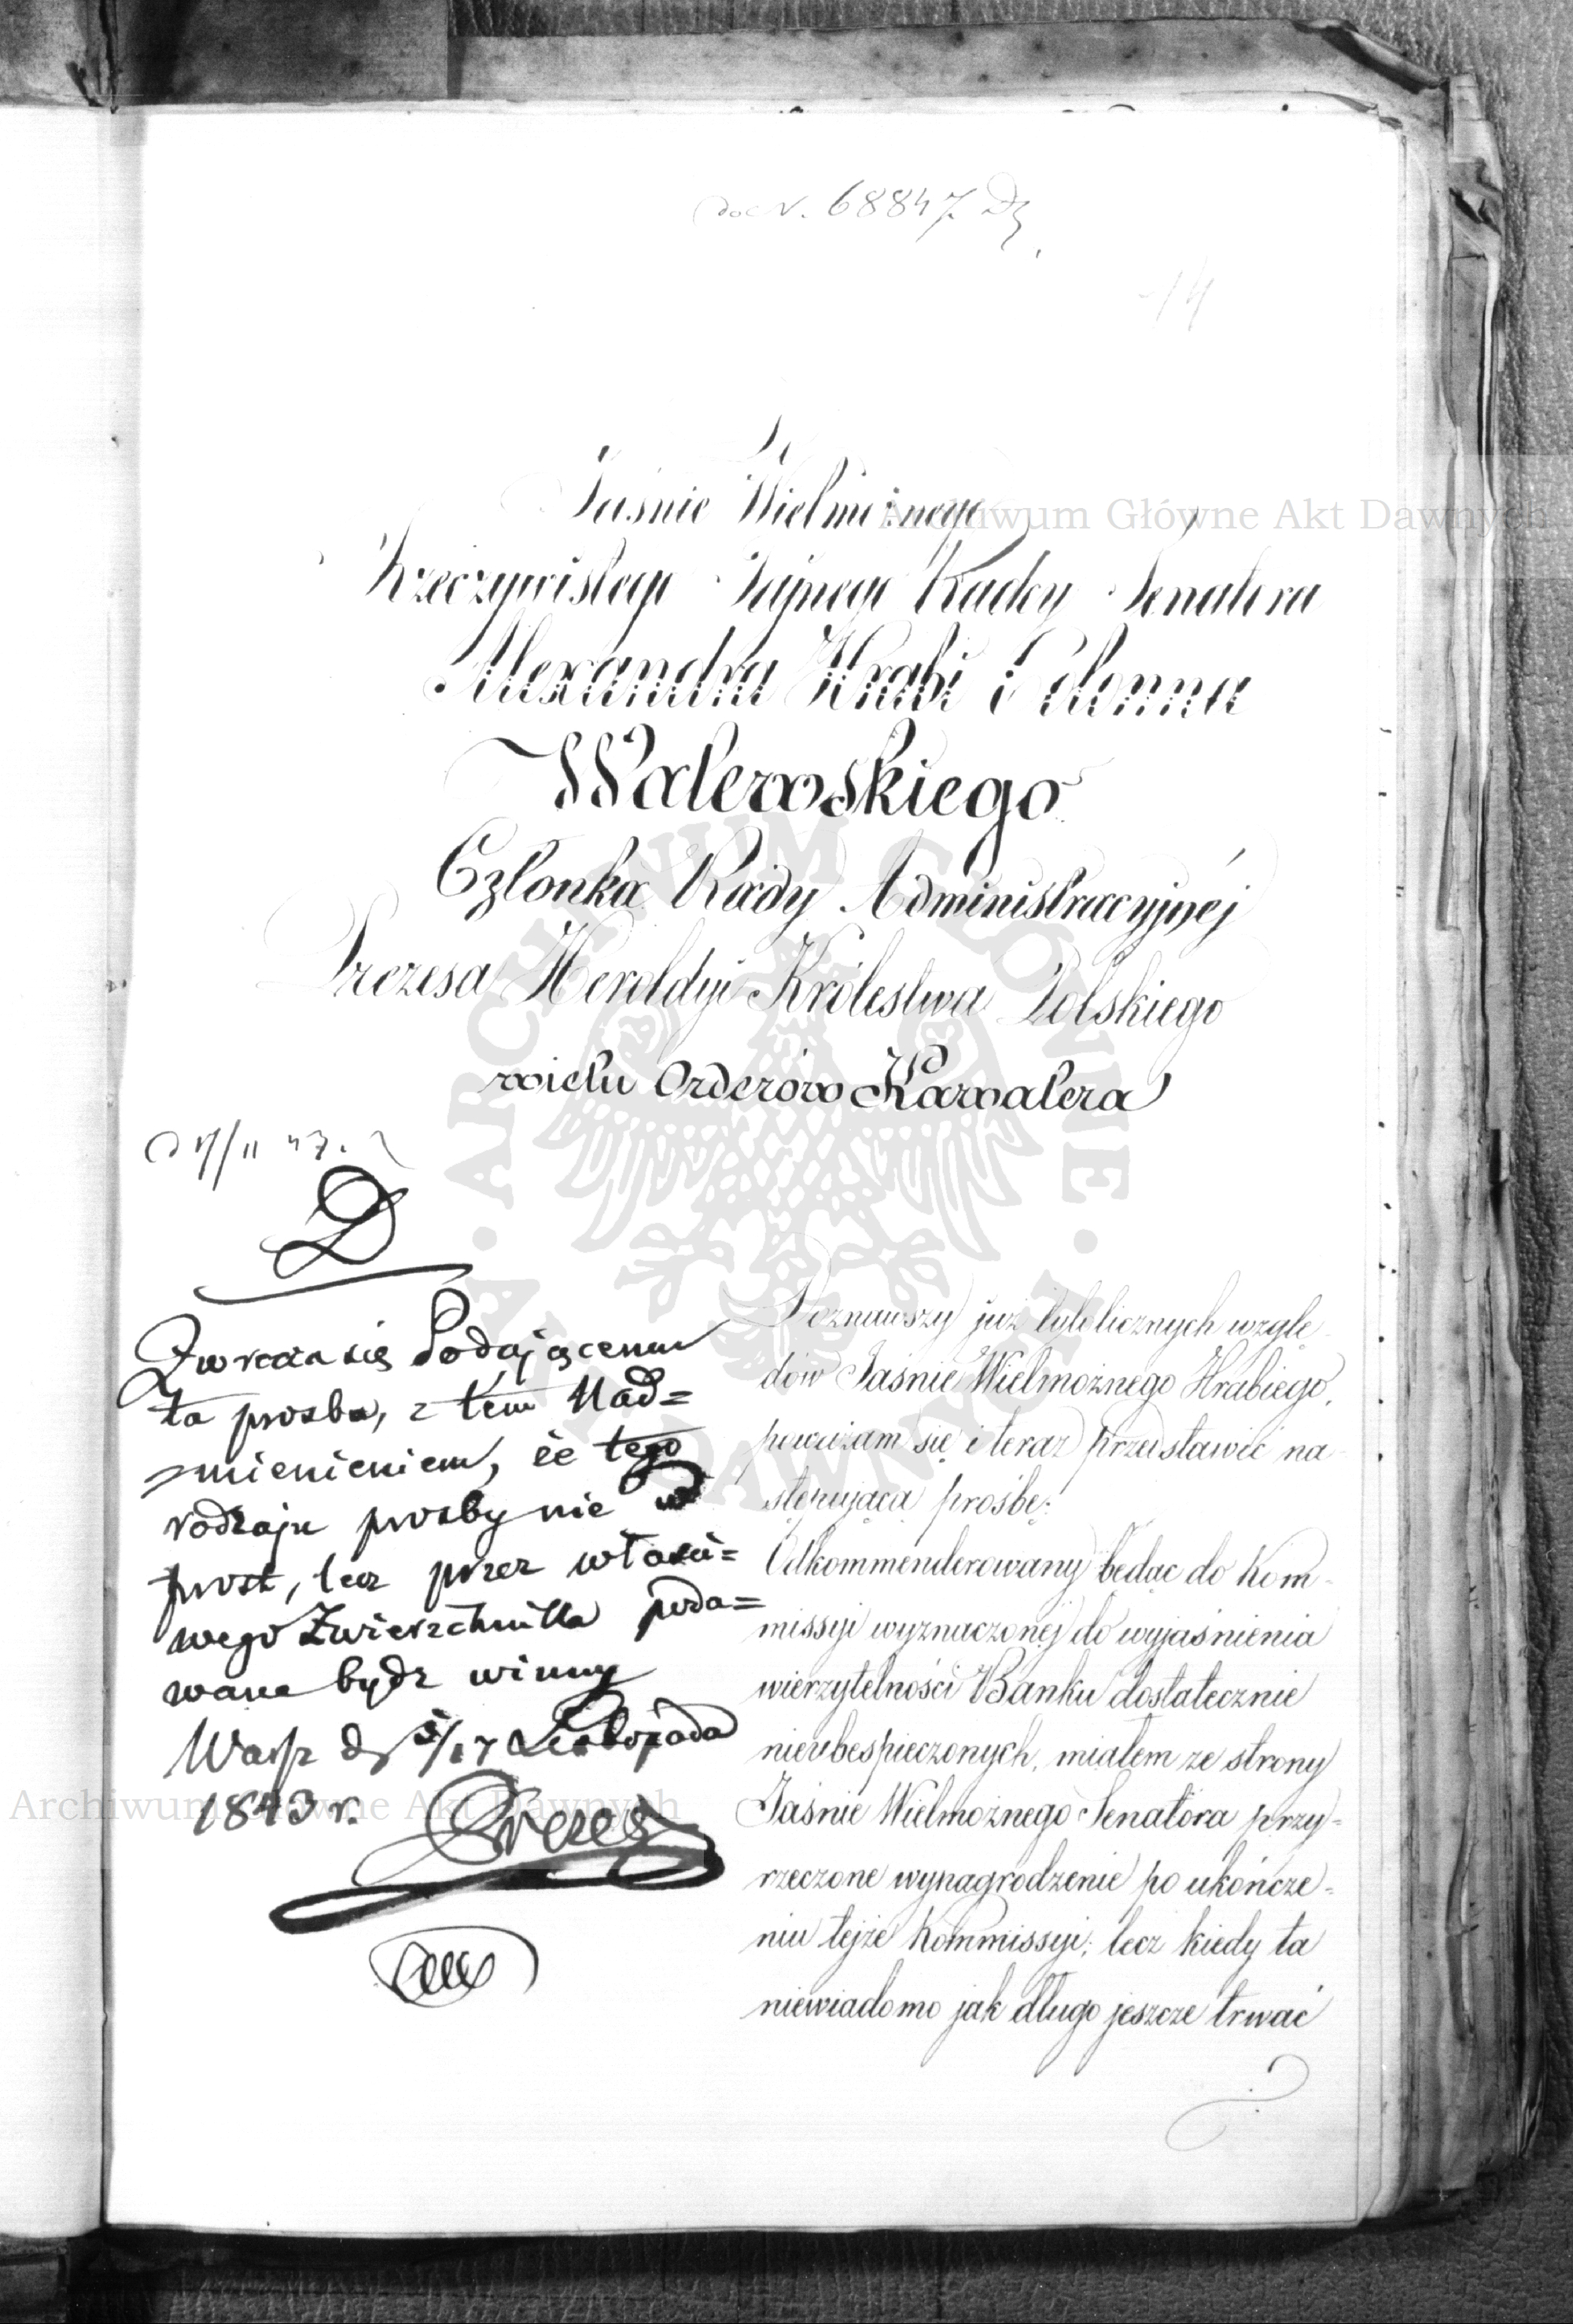 doc N. 68847
14
Jaśnie Wielmożnego
Rzeczywistego Tajnego Radcy Senatora
Alexandra Hrabi Colonna
Walewskiego
Członka Rady Administracyjnéj
Prezesa Heroldyi Królestwa Polskiego
wielu Orderów Kawalera
Zwraca się Podającemu
ta prozba, z tem Nad=
mienieniem, że tego
rodzaju prozby nie w
prost, lecz przez właści=
wego Zwierzchnika poda=
wane bydz winny
Warsz d 5/17 Listopada
1843 r.
Prezes
Doznawszy już tylolicznych wzglę-
dów Jaśnie Wielmożnego Hrabiego,
poważam się i teraz przedstawić na-
stępującą prośbę:
Odkommenderowany będąc do Kom-
missyi wyznaczonej do wyjaśnienia
wierzytelności Banku dostatecznie
nieubespieczonych, miałem ze strony
Jaśnie Wielmożnego Senatora przy=
rzeczone wynagrodzenie po ukończe=
niu tejże Kommissyi; lecz kiedy ta
niewiadomo jak długo jeszcze trwać
Archiwum Główne Akt Dawnych
Archiwum Główne Akt Dawnych
ARCHIWUM GŁÓWNE AKT DAWNYCH